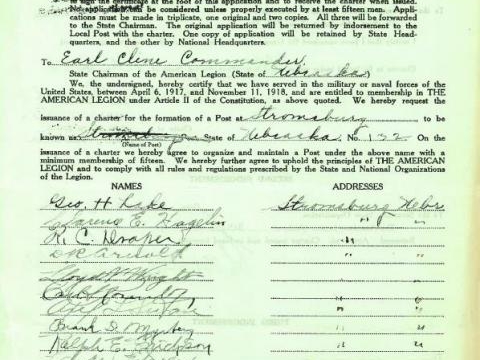 to sign the certificate at the foot of this application and to receive the charter when issued.
No application can be considered unless properly executed by at least fifteen men. Appli-
cations must be made in triplicate, one original and two copies. All three will be forwarded
to the State Chairman. The original application will be returned by indorsement to the
Local Post with the charter. One copy of application will be retained by State Head-
quarters, and the other by National Headquarters.
To Earl Cline Commander,
State Chairman of the American Legion (State of Nebraska)
We, the undersigned, hereby certify that we have served in the military or naval forces of the
United States, between April 6, 1917, and November 11, 1918, and are entitled to membership in THE
AMERICAN LEGION under Article II of the Constitution, as above quoted. We hereby request the
issuance of a charter for the formation of a Post at Stromsburg to be
known as Stromsburg Post, State of Nebraska, No. 132 On the
(Name of Post)
issuance of a charter we hereby agree to organize and maintain a Post under the above name with a
minimum membership of fifteen. We hereby further agree to uphold the principles of THE AMERICAN
LEGION and to comply with all rules and regulations prescribed by the State and National Organizations
of the Legion.
NAMES ADDRESSES
Geo. H. Lake Stromsburg Nebr
Clarence E. Hagelin " "
K. C. Draper "
Lloyd Wright
Frank S.
Ralph E. " "